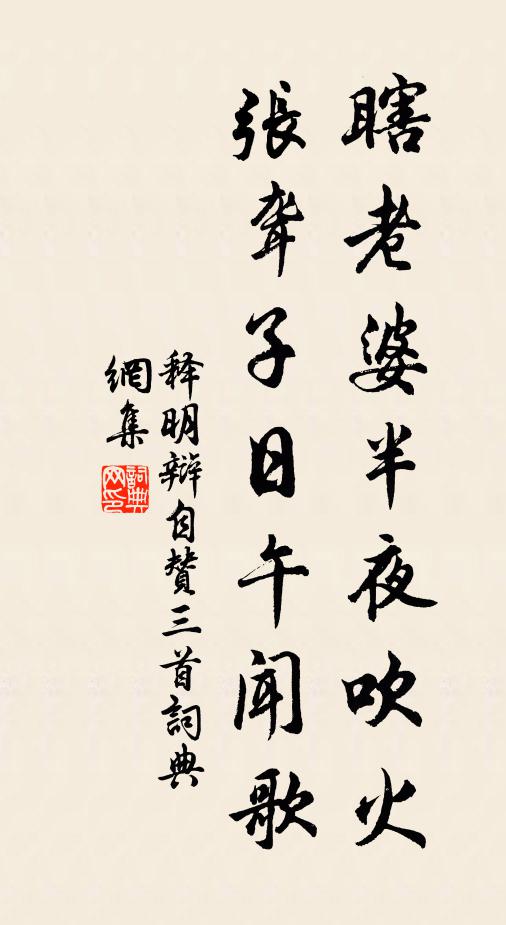 瞎老婆半夜吹火
張聾子日午聞歌
释明辯自赞三首詞典
網集
詞典网印